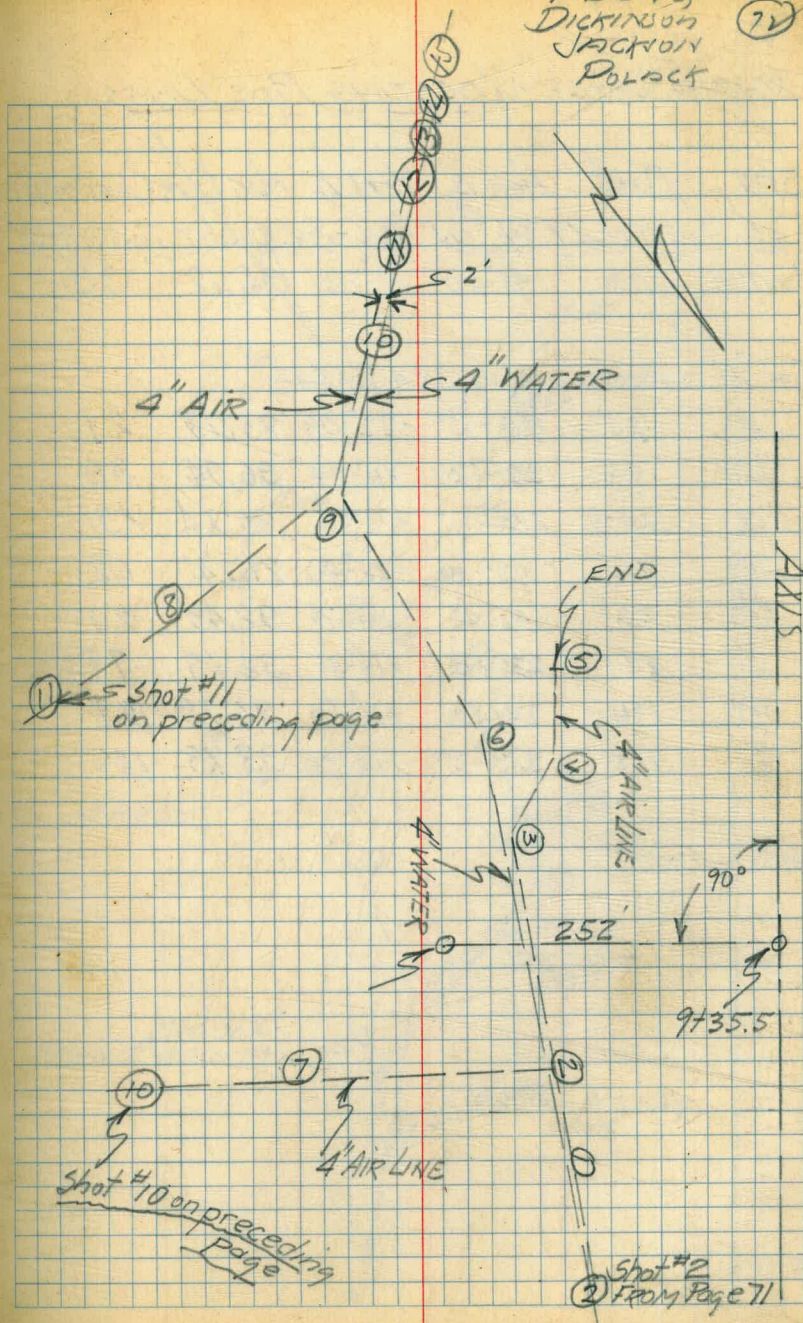 DICKINSON
JACKSON
POLACK
72
15
14
13
12
11
2'
10
4" AIR
4" WATER
9
8
END
5
AXIS
11
Shot #11
on preceding page
6
4
4" AIRLINE
3
4" WATER
90°
252'
9+35.5
2
7
10
4" AIR LINE
1
Shot #10 on preceding
page
Shot #2
2 FROM Page 71